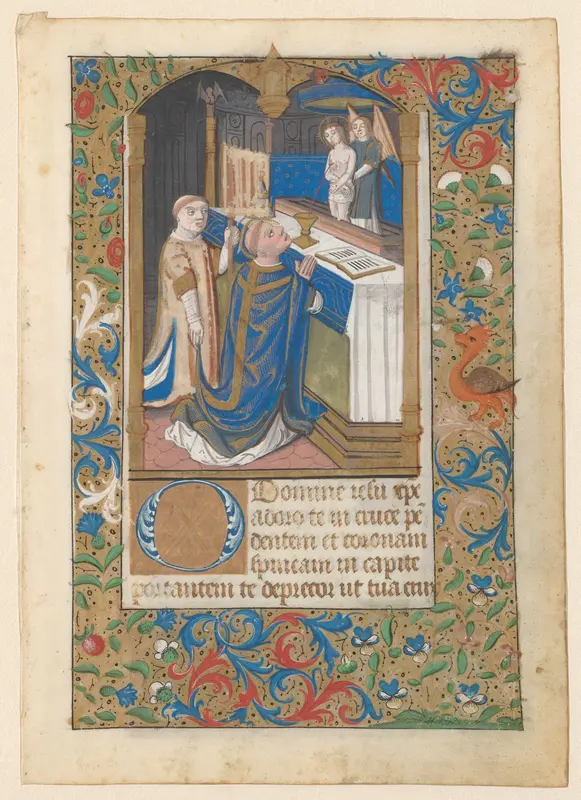 O Domine iesu xpe
adoro te in cruce pē
dentem et coronam
spineam in capite
portantem te deprecor ut tua